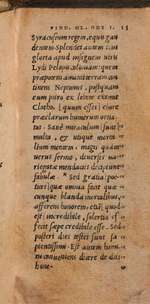 PIND. OL. ODE I. 15
Syracusium regem, equis gau
dentem. Splendet autem il. ei
gloria apud insignem viris
Lydi Pelopis coloniam: quem
præpotens amavit terram con-
tinens Neptunus, postquam
eum puro ex lebete exemit
Clotho, (quum esset) eburé
præclarum humerum ornatus.
Sane miracula sunt
multa, & utique morta-
lium mentem magis quàm
verus sermo, diversis va-
riegatæ mendaciis decipiunt
fabulæ. * Sed gratia (poe-
tices) quæ omnia facit quæ-
cunque blanda mortalibus,
afferens honorem, quod
est incredibile, solertia ef-
fecit sæpe credibile esse. Sed
posteri dies testes sunt sa-
pientissimi. Est autem homi-
ni conveniens dicere de dæ-